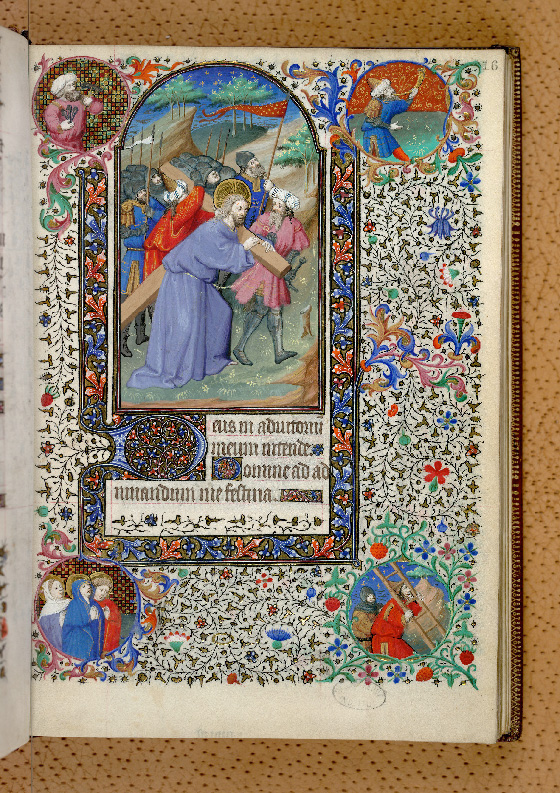 16
eus in adiutorium
meum intende
omine ad ad
iuuandum me festina.